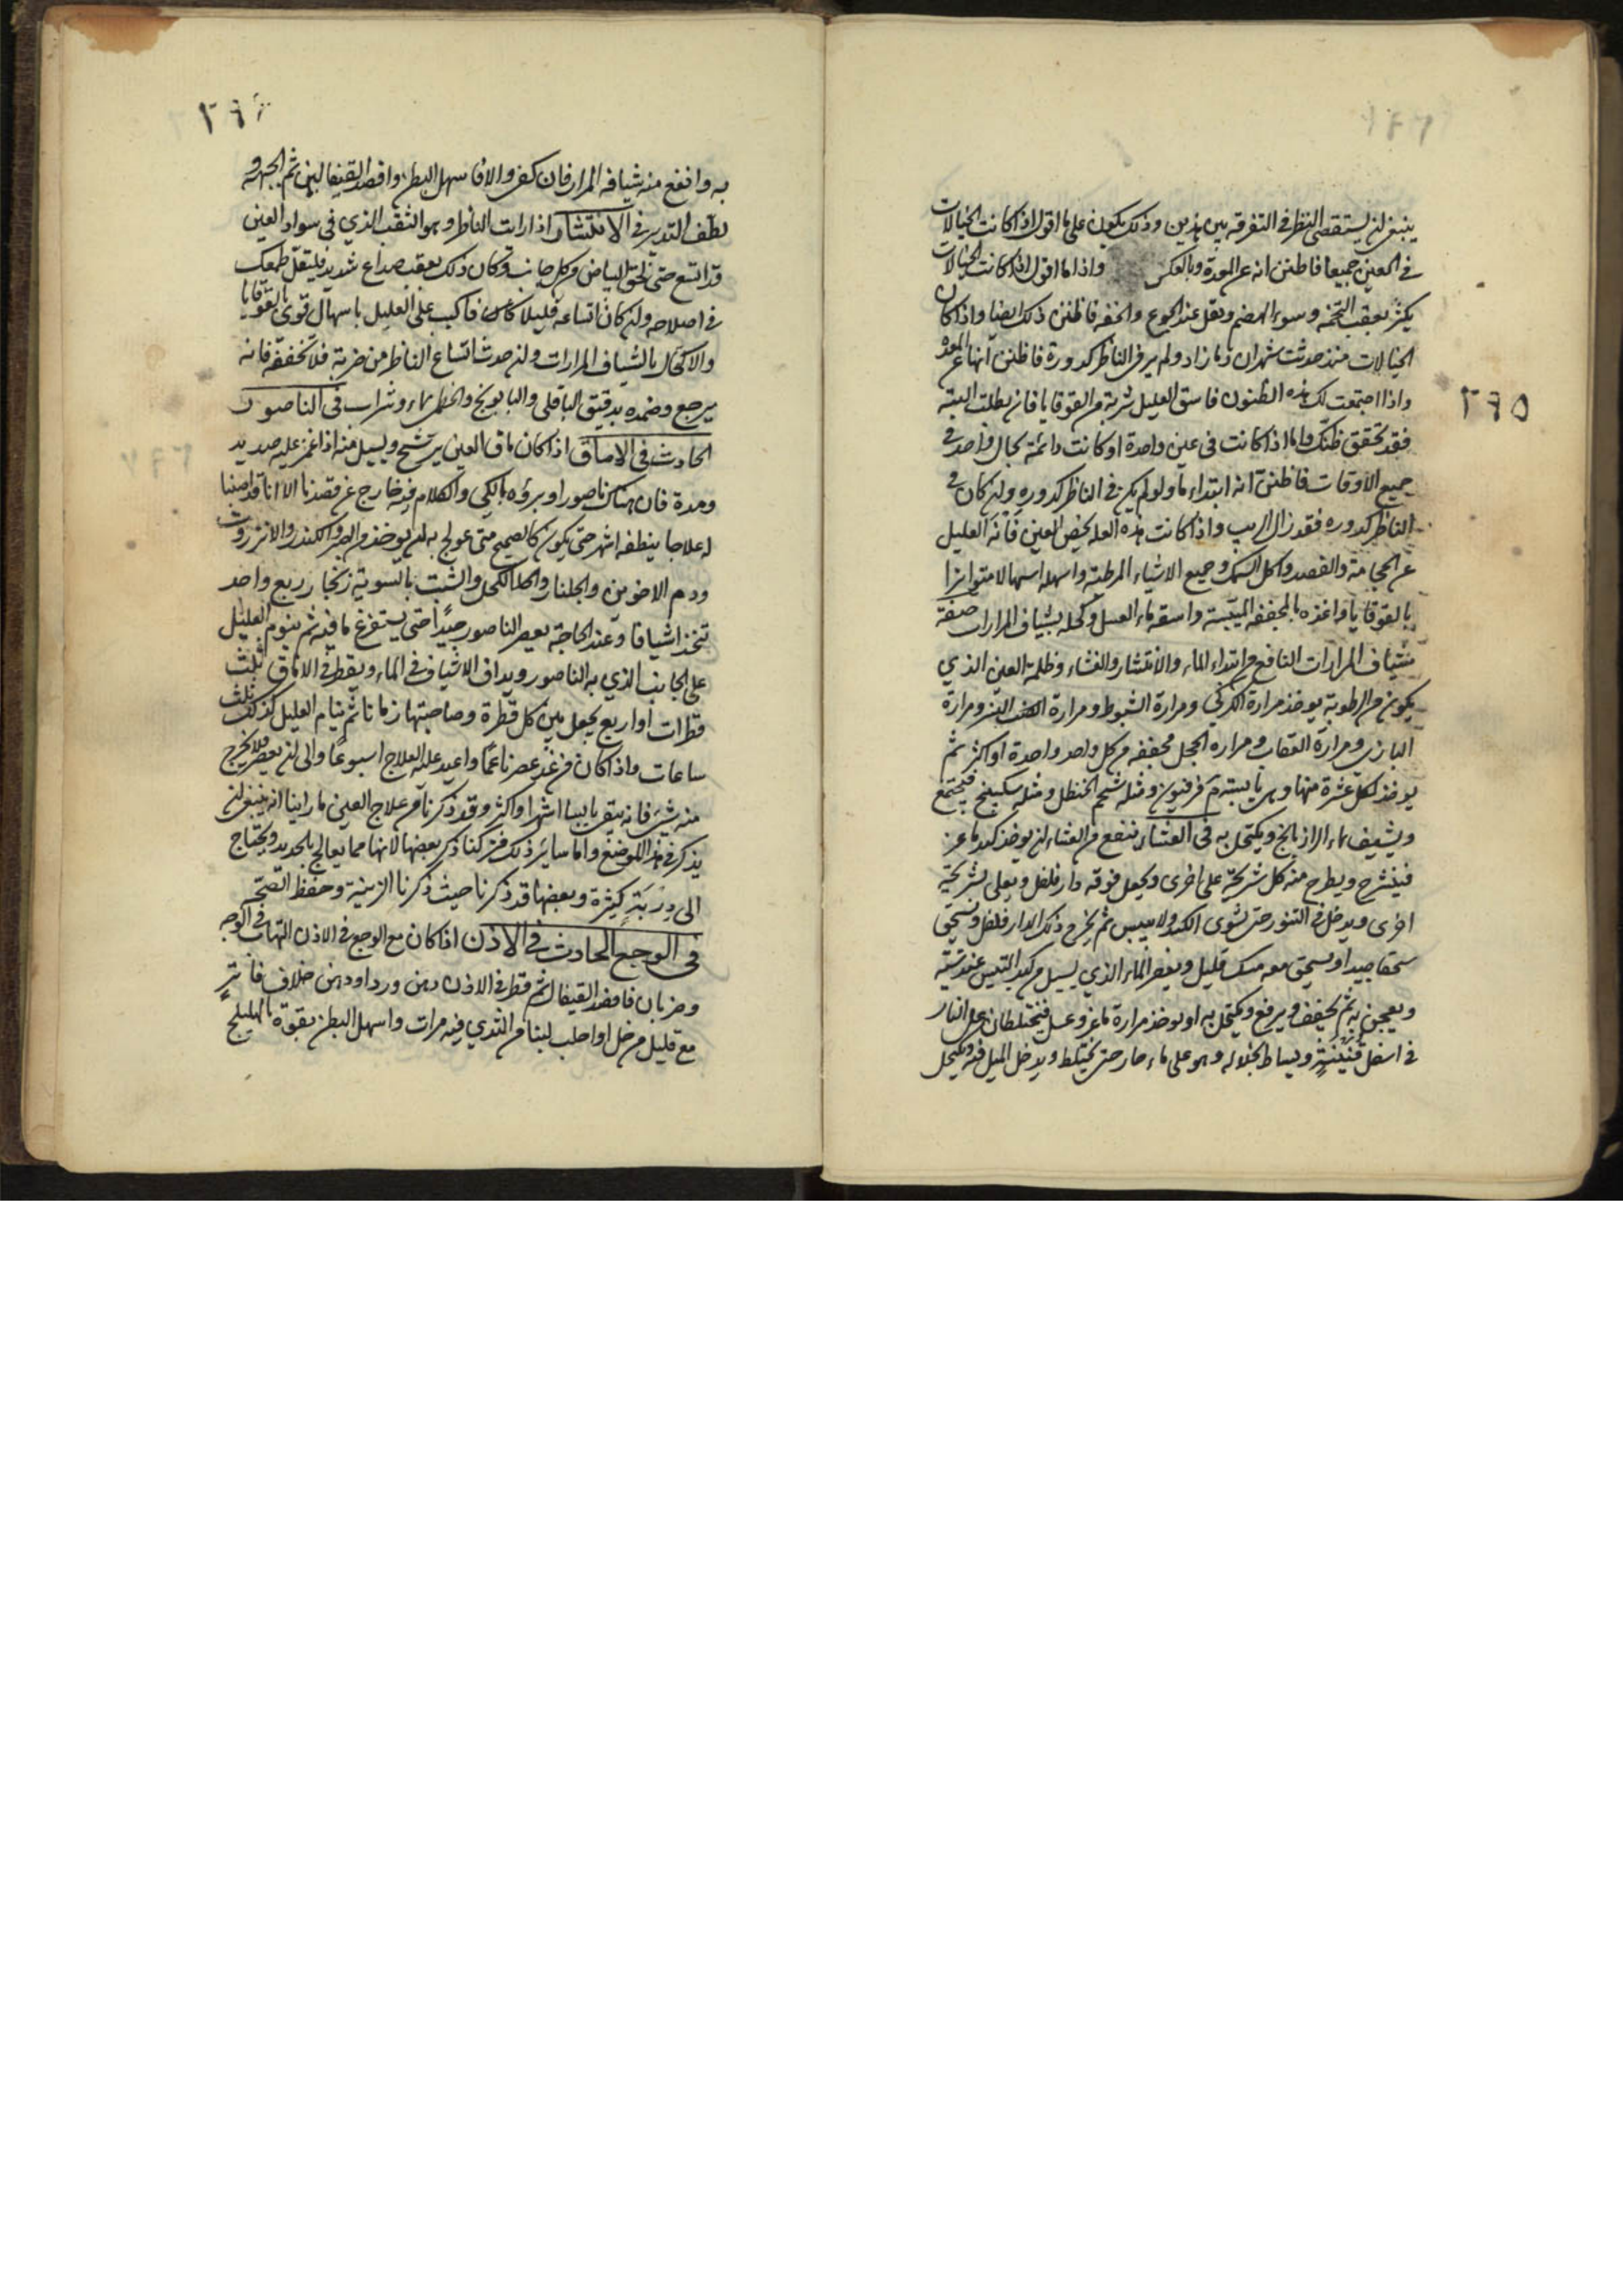 ينبغي ان يستقصى النظر في التفرقة بين هذين وذلك يكون على ما اقول اذا كانت الخيالات
في العينين جميعا فاظنن انه عن المعدة وبالعكس واذا ما اقول اذا كانت الخيالات
يكثر بعقب التخمة وسوء الهضم ويقل عند الجوع والخفة فاظنن ذلك ايضا واذا كان
الخيالات منذ حدثت شهران زمان زاد ولم ير في الناظر كدورة فاظنن انها عن المعدة
واذا اجتمعت لك هذه الظنون فاسق العليل شربة من القوقايا فان بطلت البتة
٢٩٥
فقد تحقق ظنك واما اذا كانت في عين واحدة او كانت دائمة بحال واحد في
جميع الاوقات فاظنن انه ابتداء ماء ولو لم يكن في الناظر كدوره وان كان في
الناظر كدوره فقد زال الريب واذا كانت هذه العله يخص العين فانه العليل
عن الحجامة والفصد واكل السمك وجميع الاشياء المرطبة واسهله اسهالا متواترا
بالقوقايا واغذه بالمجففه الميبسة واسقه ماء العسل وكحله بشياف المرارات صفة
شياف المرارات النافع من ابتداء الماء والانتشار والغشاء وظلمة العين الذي
يكون من الرطوبة يوخذ مرارة الكركي ومرارة الشبوط ومرارة ومرارة
البازى ومرارة العقاب ومراره الحجل مجففه من كل واحد واحدة او اكثر ثم
يوخذ لكل عشرة منها وهى يابسة درهم فرفيون ومثله شحم الحنظل ومثله سكبينج فيجمع
ويشيف بماء الرازيانج ويكتحل به في العشاء ينفع من العشاء ان يوخذ كبد ماعز
فيشرح ويطرح منه كل شريحة على اخرى ويجعل فوقه دار فلفل ويعلى بشريحة
اخرى ويدخل في التنور حتى تشوى الكبد ولا ييبس ثم يخرج ذلك الدار فلفل ويسحق
سحقا جيدا ويسحق معه مسك قليل ويعصر الماء الذي يسيل من كبد التيس عند شيه
ويعجن به ثم يجفف ويرفع ويكتحل به او يوخذ مرارة ماعز وعسل فيختلطان على النار
في اسفل قنينة ويساط بخلاله وهو على ماء حار حتى يختلط ويدخل الميل فيه ويكحل
٢٩٦
به وانفع منه شيافه المرار فان كفى والا فاسهل البطن وافصد القيفالين ثم الجبهة و
لطف التدبير في الانتشار اذا رايت الناظر وهو الثقب الذي في سواد العين
قد اتسع حتى لحق البياض من كل جانب وكان ذلك بعقب صداع شديد فليقل طمعك
في اصلاحه وان كان اتساعه قليلا كائن فاكبب على العليل باسهال قوى بالقوقايا
والاكتحال بالشياف المرارات وان حدث اتساع الناظر من ضربة فلا تخففه فانه
يرجع وضمده بدقيق الباقلى والبابونج والخطمى بماء وشراب في الناصور
الحادث في الاماق اذا كان ماق العين يرشح ويسيل منه اذا غمز عليه صديد
ومدة فان هناك ناصورا وبروه بالكي والكلام فيه خارج عن قصدنا الا انا قد اصبنا
له علاجا ينظفه اشهر حتى يكون كالصحيح متى عولج به ان يوخذ من الصبر والكندر والانزروت
ودم الاخوين والجلنار والكحل والشب بالسوية زنجار ربع واحد
تتخذ اشيافا وعند الحاجة يعصر الناصور جيدا حتى يستفرغ ما فيه ثم ينوم العليل
على الجانب الذي به الناصور ويداف الاشياف في الماء ويقطر في الاماق ثلث
قطرات او اربع يجعل بين كل قطرة وصاحبتها زمانا ثم ينام العليل كذلك ثلث
ساعات واذا كان من غد عصر ناعما واعيد عليه العلاج اسبوعا والى ان يعصر فلا يخرج
منه شى فانه يبقى يابسا اشهرا واكثر وقد ذكرنا من علاج العين ما راينا انه ينبغي ان
يذكر في هذا الموضع واما ساير ذلك فتركنا ذكر بعضها لانها مما يعالج بالحديد ويحتاج
الى دربة كثيرة وبعضها قد ذكرنا حيث ذكرنا الزينة وحفظ الصحة
في الوجع الحادث في الاذن اذا كان مع الوجع في الاذن التهاب في الوجه
وضربان فافصد القيفال ثم قطر في الاذن دهن ورد او دهن خلاف فاتر
مع قليل من خل او احلب لبنا من الثدي فيه مرات واسهل البطن بقوة بالهليلج